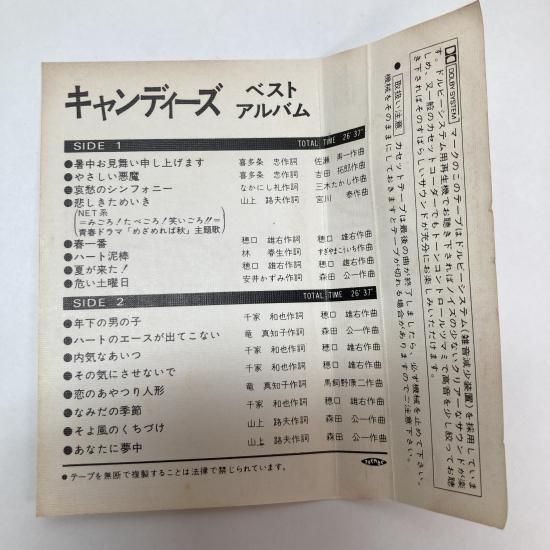 キャンディーズ ベスト
アルバム
SIDE 1 TOTAL TIME 26'37"
●暑中お見舞い申し上げます 喜多条 忠作詞 佐瀬 寿一作曲
●やさしい悪魔 喜多条 忠作詞 吉田 拓郎作曲
●哀愁のシンフォニー なかにし礼作詞 三木たかし作曲
●悲しきためいき 山上 路夫作詞 宮川 泰作曲
(NET系
=みごろ!たべごろ!笑いごろ!!=
青春ドラマ「めざめれば秋」主題歌)
●春一番 穂口 雄右作詞 穂口 雄右作曲
●ハート泥棒 林 春生作詞 すぎやまこういち作曲
●夏が来た! 穂口 雄右作詞 穂口 雄右作曲
●危い土曜日 安井かずみ作詞 森田 公一作曲
SIDE 2 TOTAL TIME 26'37"
●年下の男の子 千家 和也作詞 穂口 雄右作曲
●ハートのエースが出てこない 竜 真知子作詞 森田 公一作曲
●内気なあいつ 千家 和也作詞 穂口 雄右作曲
●その気にさせないで 千家 和也作詞 穂口 雄右作曲
●恋のあやつり人形 竜 真知子作詞 馬飼野康二作曲
●なみだの季節 千家 和也作詞 穂口 雄右作曲
●そよ風のくちづけ 山上 路夫作詞 森田 公一作曲
●あなたに夢中 山上 路夫作詞 森田 公一作曲
●テープを無断で複製することは法律で禁じられています。
DOLBY SYSTEM マークのこのテープはドルビーシステム(雑音減少装置)を採用していま
す。ドルビーシステム用再生機でお聴き下さればノイズの少ないクリアーなサウンドが楽
しめ、又一般のカセットコーダーでもトーンコントロールツマミで高音を少し絞ってお聴
き下さればそのすばらしいサウンドが充分にお楽しみいただけます。
●取扱い注意 カセットテープは最後の曲が終了しましたら、必ず機械を止めて下さい。
機械をそのままにしておきますとテープが切れる場合がありますのでご注意下さい。